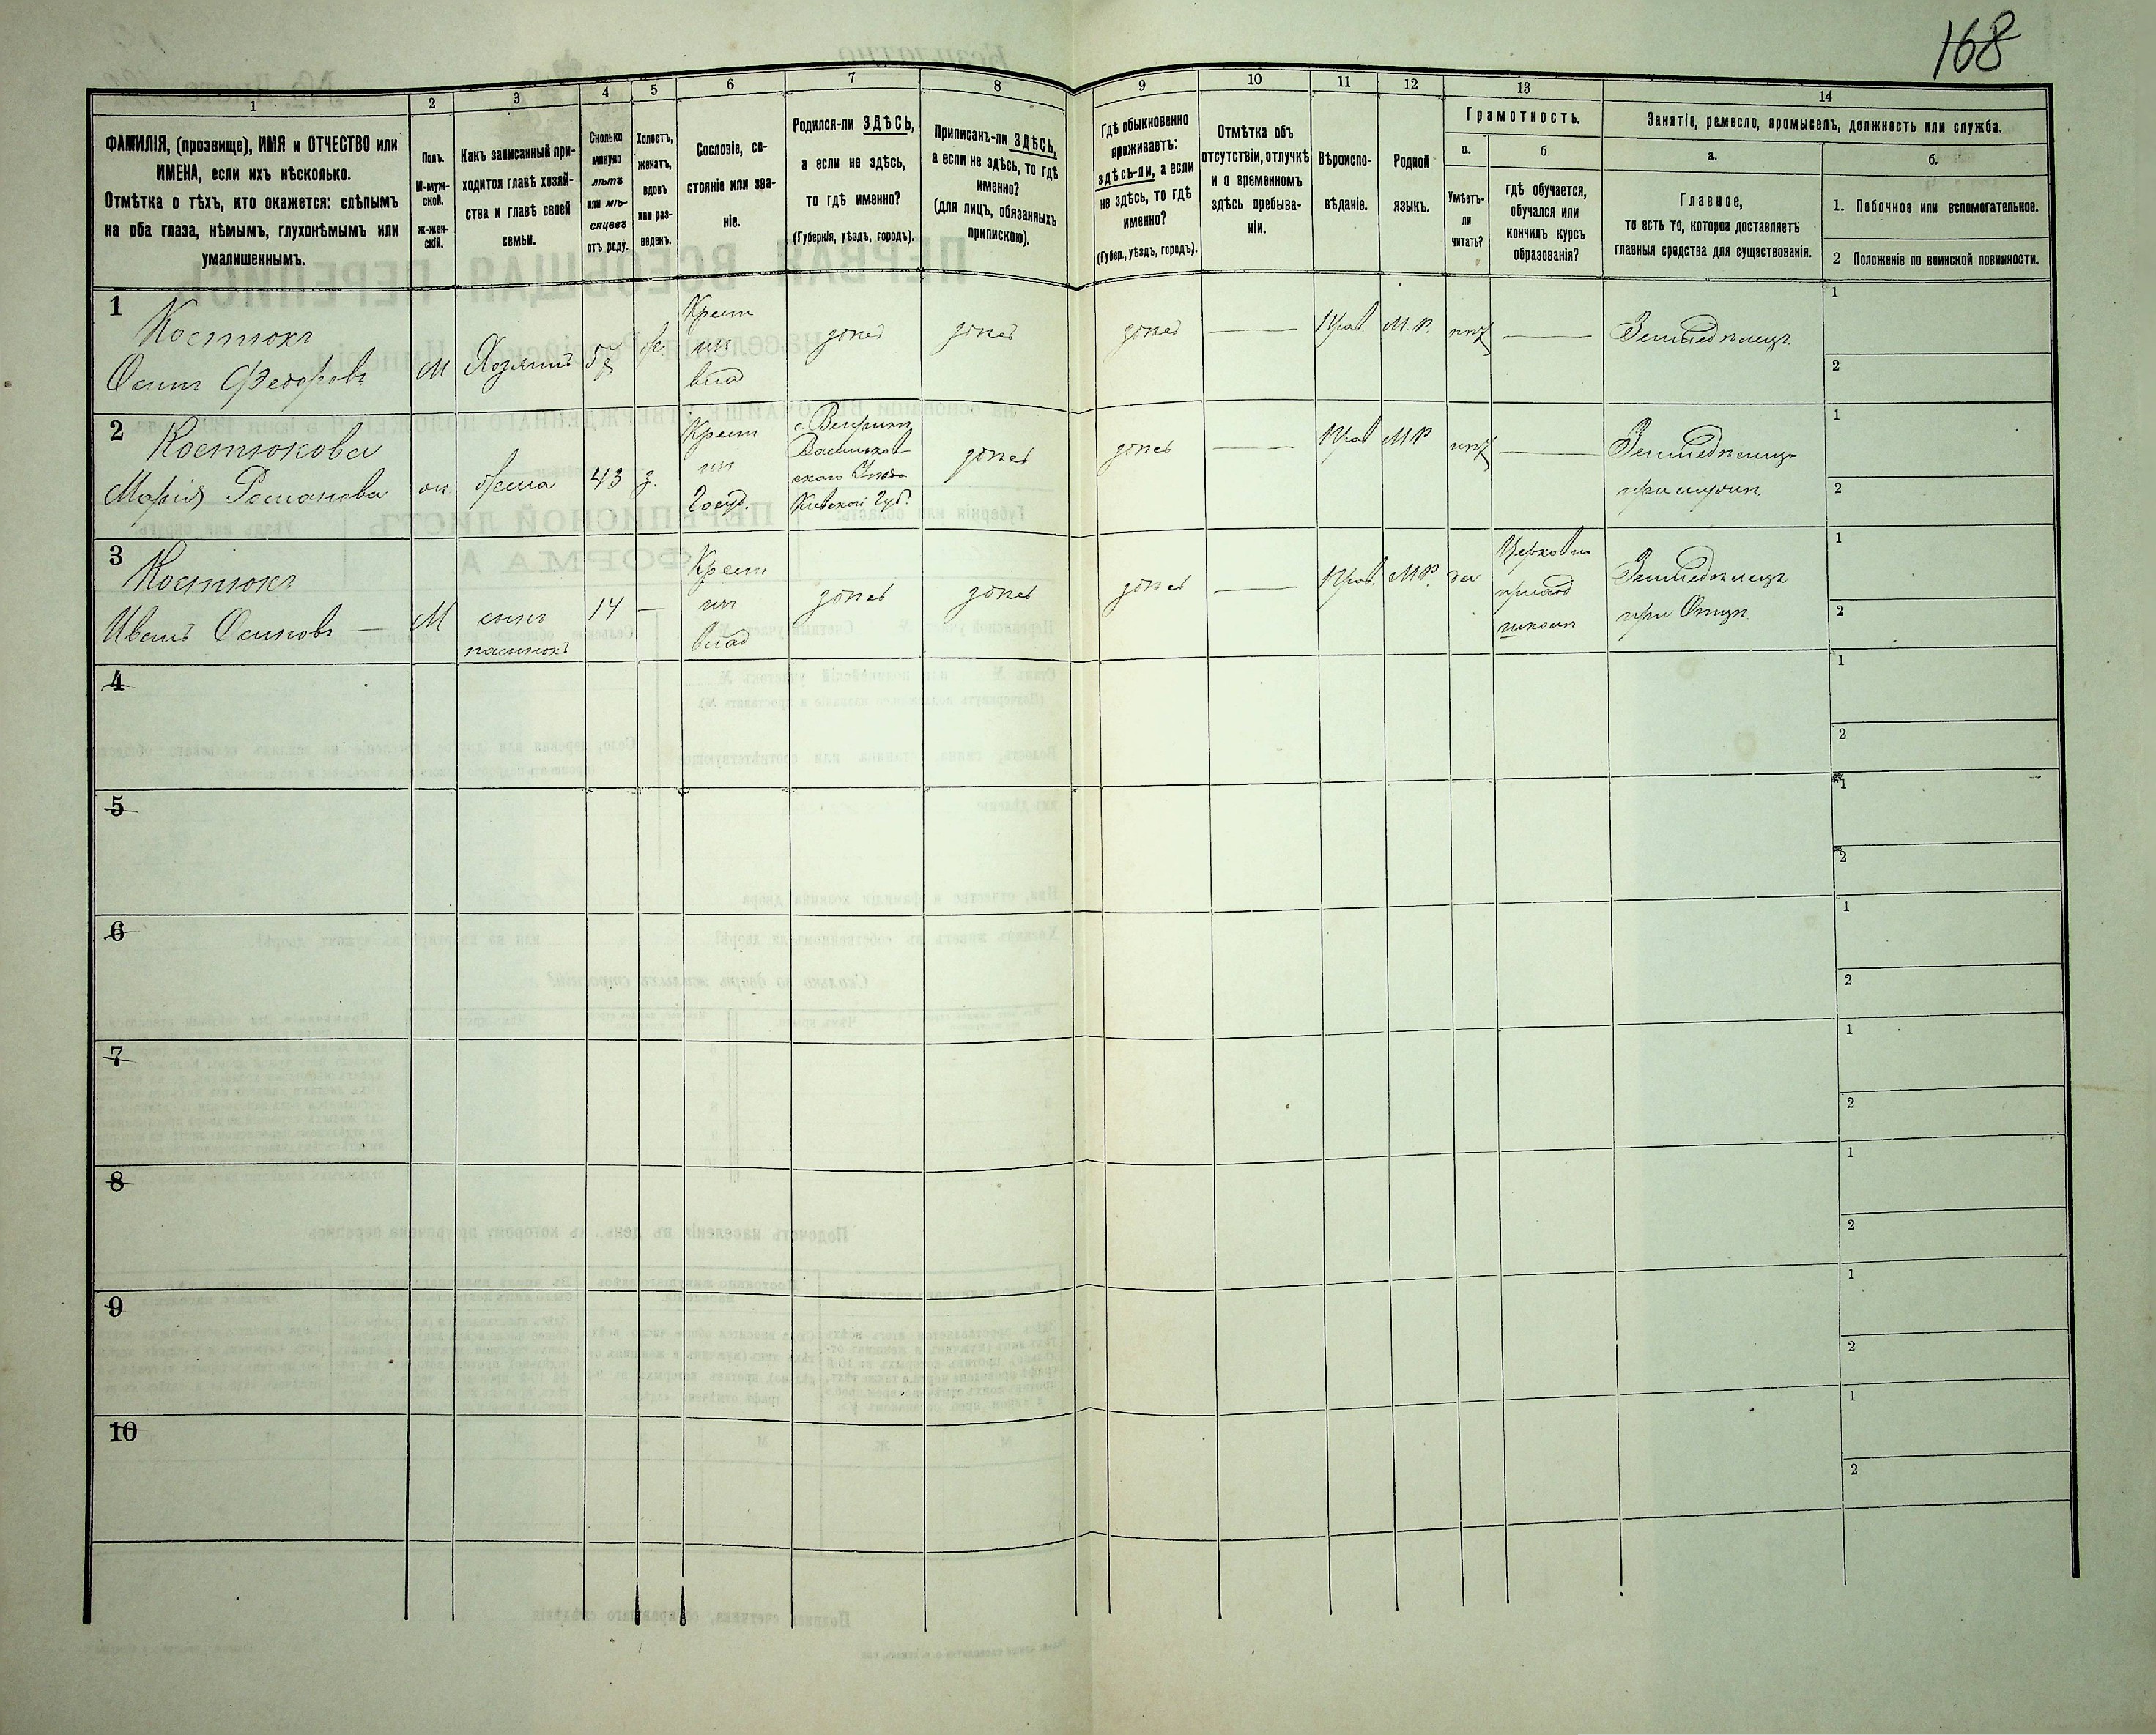 168
1
2
3
4
5
6
7
8
9
10
11
12
13
14
ФАМИЛІЯ, (прозвище), ИМЯ и ОТЧЕСТВО или
ИМЕНА, если ихъ нѣсколько.
Отмѣтка о тѣхъ, кто окажется: слѣпымъ
на оба глаза, нѣмымъ, глухонѣмымъ или
умалишеннымъ.
Полъ.
М-муж-
ской.
ж-жен-
скій.
Какъ записанный при-
ходится главѣ хозяй-
ства и главѣ своей
семьи.
Сколько
минуло
лѣтъ
или мѣ-
сяцевъ
отъ роду.
Холостъ,
женатъ,
вдовъ
или раз-
веденъ.
Сословіе, со-
стояніе или зва-
ніе.
Родился-ли ЗДѢСЬ,
а если не здѣсь,
то гдѣ именно?
(Губернія, уѣздъ, городъ).
Приписанъ-ли ЗДѢСЬ,
а если не здѣсь, то гдѣ
именно?
(для лицъ, обязанныхъ
припискою).
Гдѣ обыкновенно
проживаетъ:
здѣсь-ли, а если
не здѣсь, то гдѣ
именно?
(Губер., уѣздъ, городъ).
Отмѣтка объ
отсутствіи, отлучкѣ
и о временномъ
здѣсь пребыва-
ніи.
Вѣроиспо-
вѣданіе.
Родной
языкъ.
Грамотность.
а.
Умѣетъ-
ли
читать?
б.
гдѣ обучается,
обучался или
кончилъ курсъ
образованія?
Занятіе, ремесло, промыселъ, должность или служба.
а.
Главное,
то есть то, которое доставляетъ
главныя средства для существованія.
б.
1. Побочное или вспомогательное.
2 Положеніе по воинской повинности.
1
Костюкъ
Осипъ Федоровъ
М
Хозяинъ
57
ж.
Крест
изъ
влад
здѣсь
здѣсь
здѣсь
Прав.
М.Р.
нѣт
Земледѣлецъ
1
2
2
Костюкова
Марія Романова
ж
жена
43
з.
Крест
изъ
Госуд.
Васильков
скаго Уѣзда
Кіевской Губ.
здѣсь
здѣсь
Прав
М.Р
нѣт
Земледѣлица
при мужѣ
1
2
3
Костюкъ
Иванъ Осиповъ
М
сынъ
пасынокъ
14
Крест
изъ
влад
здѣсь
здѣсь
здѣсь
Прав.
М.Р.
да
Церковно
приход
школѣ
Земледѣлецъ
при Отцѣ
1
2
4
1
2
5
1
2
6
1
2
7
1
2
8
1
2
9
1
2
10
1
2